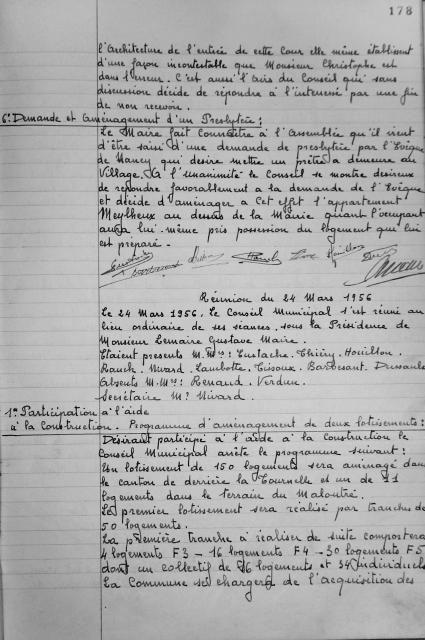 178
l'architecture de l'entrée de cette Cour elle même établissent
d'une façon incontestable que Monsieur Christophe est
dans l'erreur. C'est aussi l'avis du Conseil qui sans
discussion décide de répondre à l'intéressé par une fin
de non recevoir.
6° Demande et aménagement d'un Presbytère :
Le Maire fait connaître à l'assemblée qu'il vient
d'être saisi d'une demande de presbytère par l'Evêque
de Nancy qui désire mettre un prêtre à demeure au
Village. A l'unanimité le Conseil se montre désireux
de répondre favorablement a la demande de l'Evêque
et décide d'aménager a cet effet l'appartement
Meylheux au dessus de la Mairie quant l'occupant
aura lui-même pris possession du logement que lui
est préparé.
Réunion du 24 Mars 1956
Le 24 Mars 1956. Le Conseil Municipal s'est réuni au
lieu ordinaire de ses séances, sous la Présidence de
Monsieur Lemaire Gustave Maire.
Etaient présents M.Mrs : Eustache. Thiéry. Houillon.
Rauch. Nivard. Lambotte. Cisoux. Barbesant. Dussaule
Absents M.Mrs : Renaud. Verdun.
Secrétaire Mr Nivard.
1° Participation à l'aide
à la Construction. Programme d'aménagement de deux lotissements :
Désirant participé à l'aide à la construction le
Conseil Municipal arrête le programme suivant :
Un lotissement de 150 logements sera aménagé dans
le canton de derrière la Tournelle et un de 21
logements dans le terrain du Maloutré.
Le premier lotissement sera réalisé par tranches de
50 logements.
La première tranche à réaliser de suite comportera
4 logements F3 - 16 logements F4 - 30 logements F5
dont un collectif de 16 logements et 34 individuels
La Commune se chargera de l'acquisition des